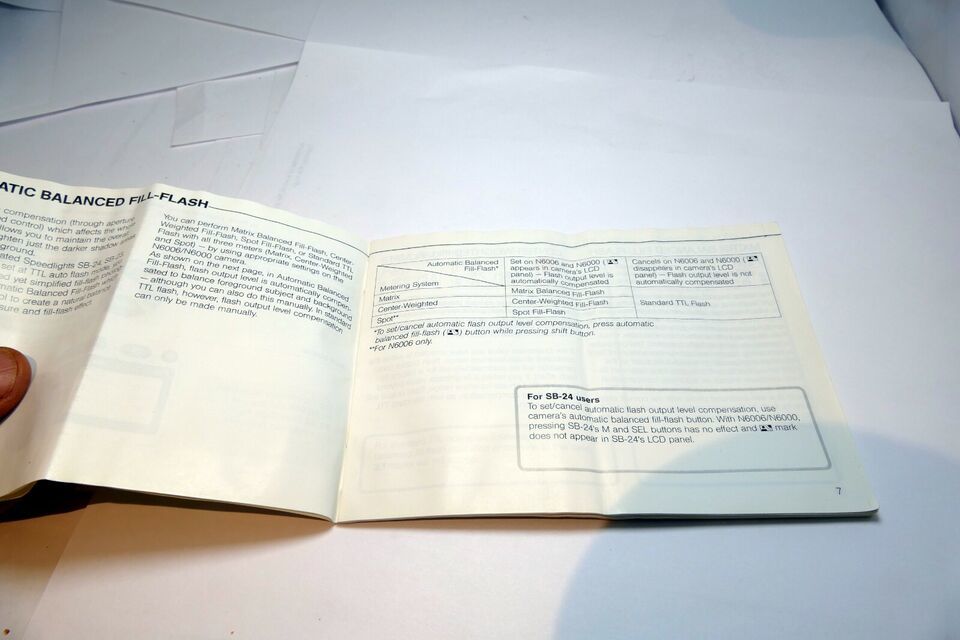 ATIC BALANCED FILL-FLASH
compensation (through aperture
ed control) which affects the whole
llows you to maintain the overall
ghten just the darker shadow areas
ground.
ated Speedlights SB-24, SB-23,
set at TTL auto flash mode, you
ed yet simplified fill-flash
matic Balanced Fill-Flash which
ol to create a natural balance
sure and fill-flash effect.
You can perform Matrix Balanced Fill-Flash, Center-
Weighted Fill-Flash, Spot Fill-Flash, or Standard TTL
Flash with all three meters (Matrix, Center-Weighted
and Spot) — by using appropriate settings on the
N6006/N6000 camera.
As shown on the next page, in Automatic Balanced
Fill-Flash, flash output level is automatically compen-
sated to balance foreground subject and background
— although you can also do this manually. In standard
TTL flash, however, flash output level compensation
can only be made manually.
Automatic Balanced
Fill-Flash*
Metering System
Set on N6006 and N6000 (
appears in camera's LCD
panel) — Flash output level is
automatically compensated
Cancels on N6006 and N6000 (
disappears in camera's LCD
panel) — Flash output level is not
automatically compensated
Matrix
Matrix Balanced Fill-Flash
Center-Weighted
Center-Weighted Fill-Flash
Standard TTL Flash
Spot**
Spot Fill-Flash
*To set/cancel automatic flash output level compensation, press automatic
balanced fill-flash ( ) button while pressing shift button.
**For N6006 only.
For SB-24 users
To set/cancel automatic flash output level compensation, use
camera's automatic balanced fill-flash button. With N6006/N6000,
pressing SB-24's M and SEL buttons has no effect and mark
does not appear in SB-24's LCD panel.
7